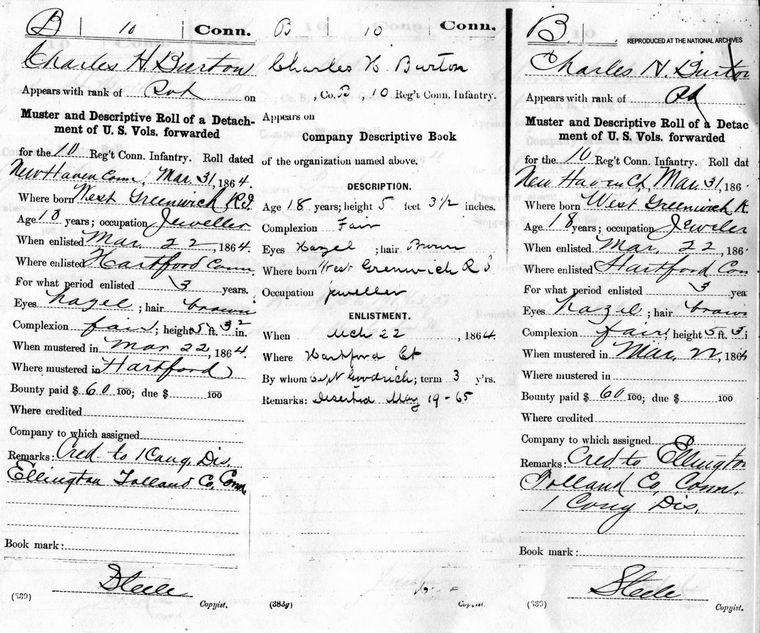 B 10 Conn.
Charles H Burton
Appears with rank of Pvt on
Muster and Descriptive Roll of a Detach-
ment of U. S. Vols. forwarded
for the 10 Reg't Conn. Infantry. Roll dated
New Haven Conn, Mar. 31, 1864.
Where born West Greenwich R.I.
Age 18 years; occupation Jeweller
When enlisted Mar. 22, 1864.
Where enlisted Hartford Conn
For what period enlisted 3 years.
Eyes hazel; hair brown
Complexion fair; height 5 ft. 3 1/2 in.
When mustered in Mar 22, 1864.
Where mustered in Hartford
Bounty paid $ 60 100; due $ 100
Where credited
Company to which assigned
Remarks: Cred to 1 Cong. Dis.
Ellington Tolland Co, Conn.
Book mark:
Steele
(339) Copyist.
B 10 Conn.
Charles H Burton
, Co. B, 10 Reg't Conn. Infantry.
Appears on
Company Descriptive Book
of the organization named above.
DESCRIPTION.
Age 18 years; height 5 feet 3 1/2 inches.
Complexion Fair
Eyes Hazel; hair Brown
Where born West Greenwich R I
Occupation Jeweller
ENLISTMENT.
When Mch 22, 1864.
Where Hartford Ct
By whom Capt Goodrich; term 3 y'rs.
Remarks: Deserted May 19-65
Copyist.
B
REPRODUCED AT THE NATIONAL ARCHIVES
Charles H. Burton
Appears with rank of Pvt
Muster and Descriptive Roll of a Detac
ment of U. S. Vols. forwarded
for the 10 Reg't Conn. Infantry. Roll dat
New Haven Ct, Mar. 31, 186
Where born West Greenwich R.
Age 18 years; occupation Jeweler
When enlisted Mar. 22, 186
Where enlisted Hartford Con
For what period enlisted 3 yea
Eyes hazel; hair brown
Complexion fair; height 5 ft. 3 i
When mustered in Mar. 22, 1864
Where mustered in
Bounty paid $ 60 100; due $ 100
Where credited
Company to which assigned
Remarks: Cred to Ellington
Tolland Co, Conn.
1 Cong Dis.
Book mark:
Steele
(339) Copyist.